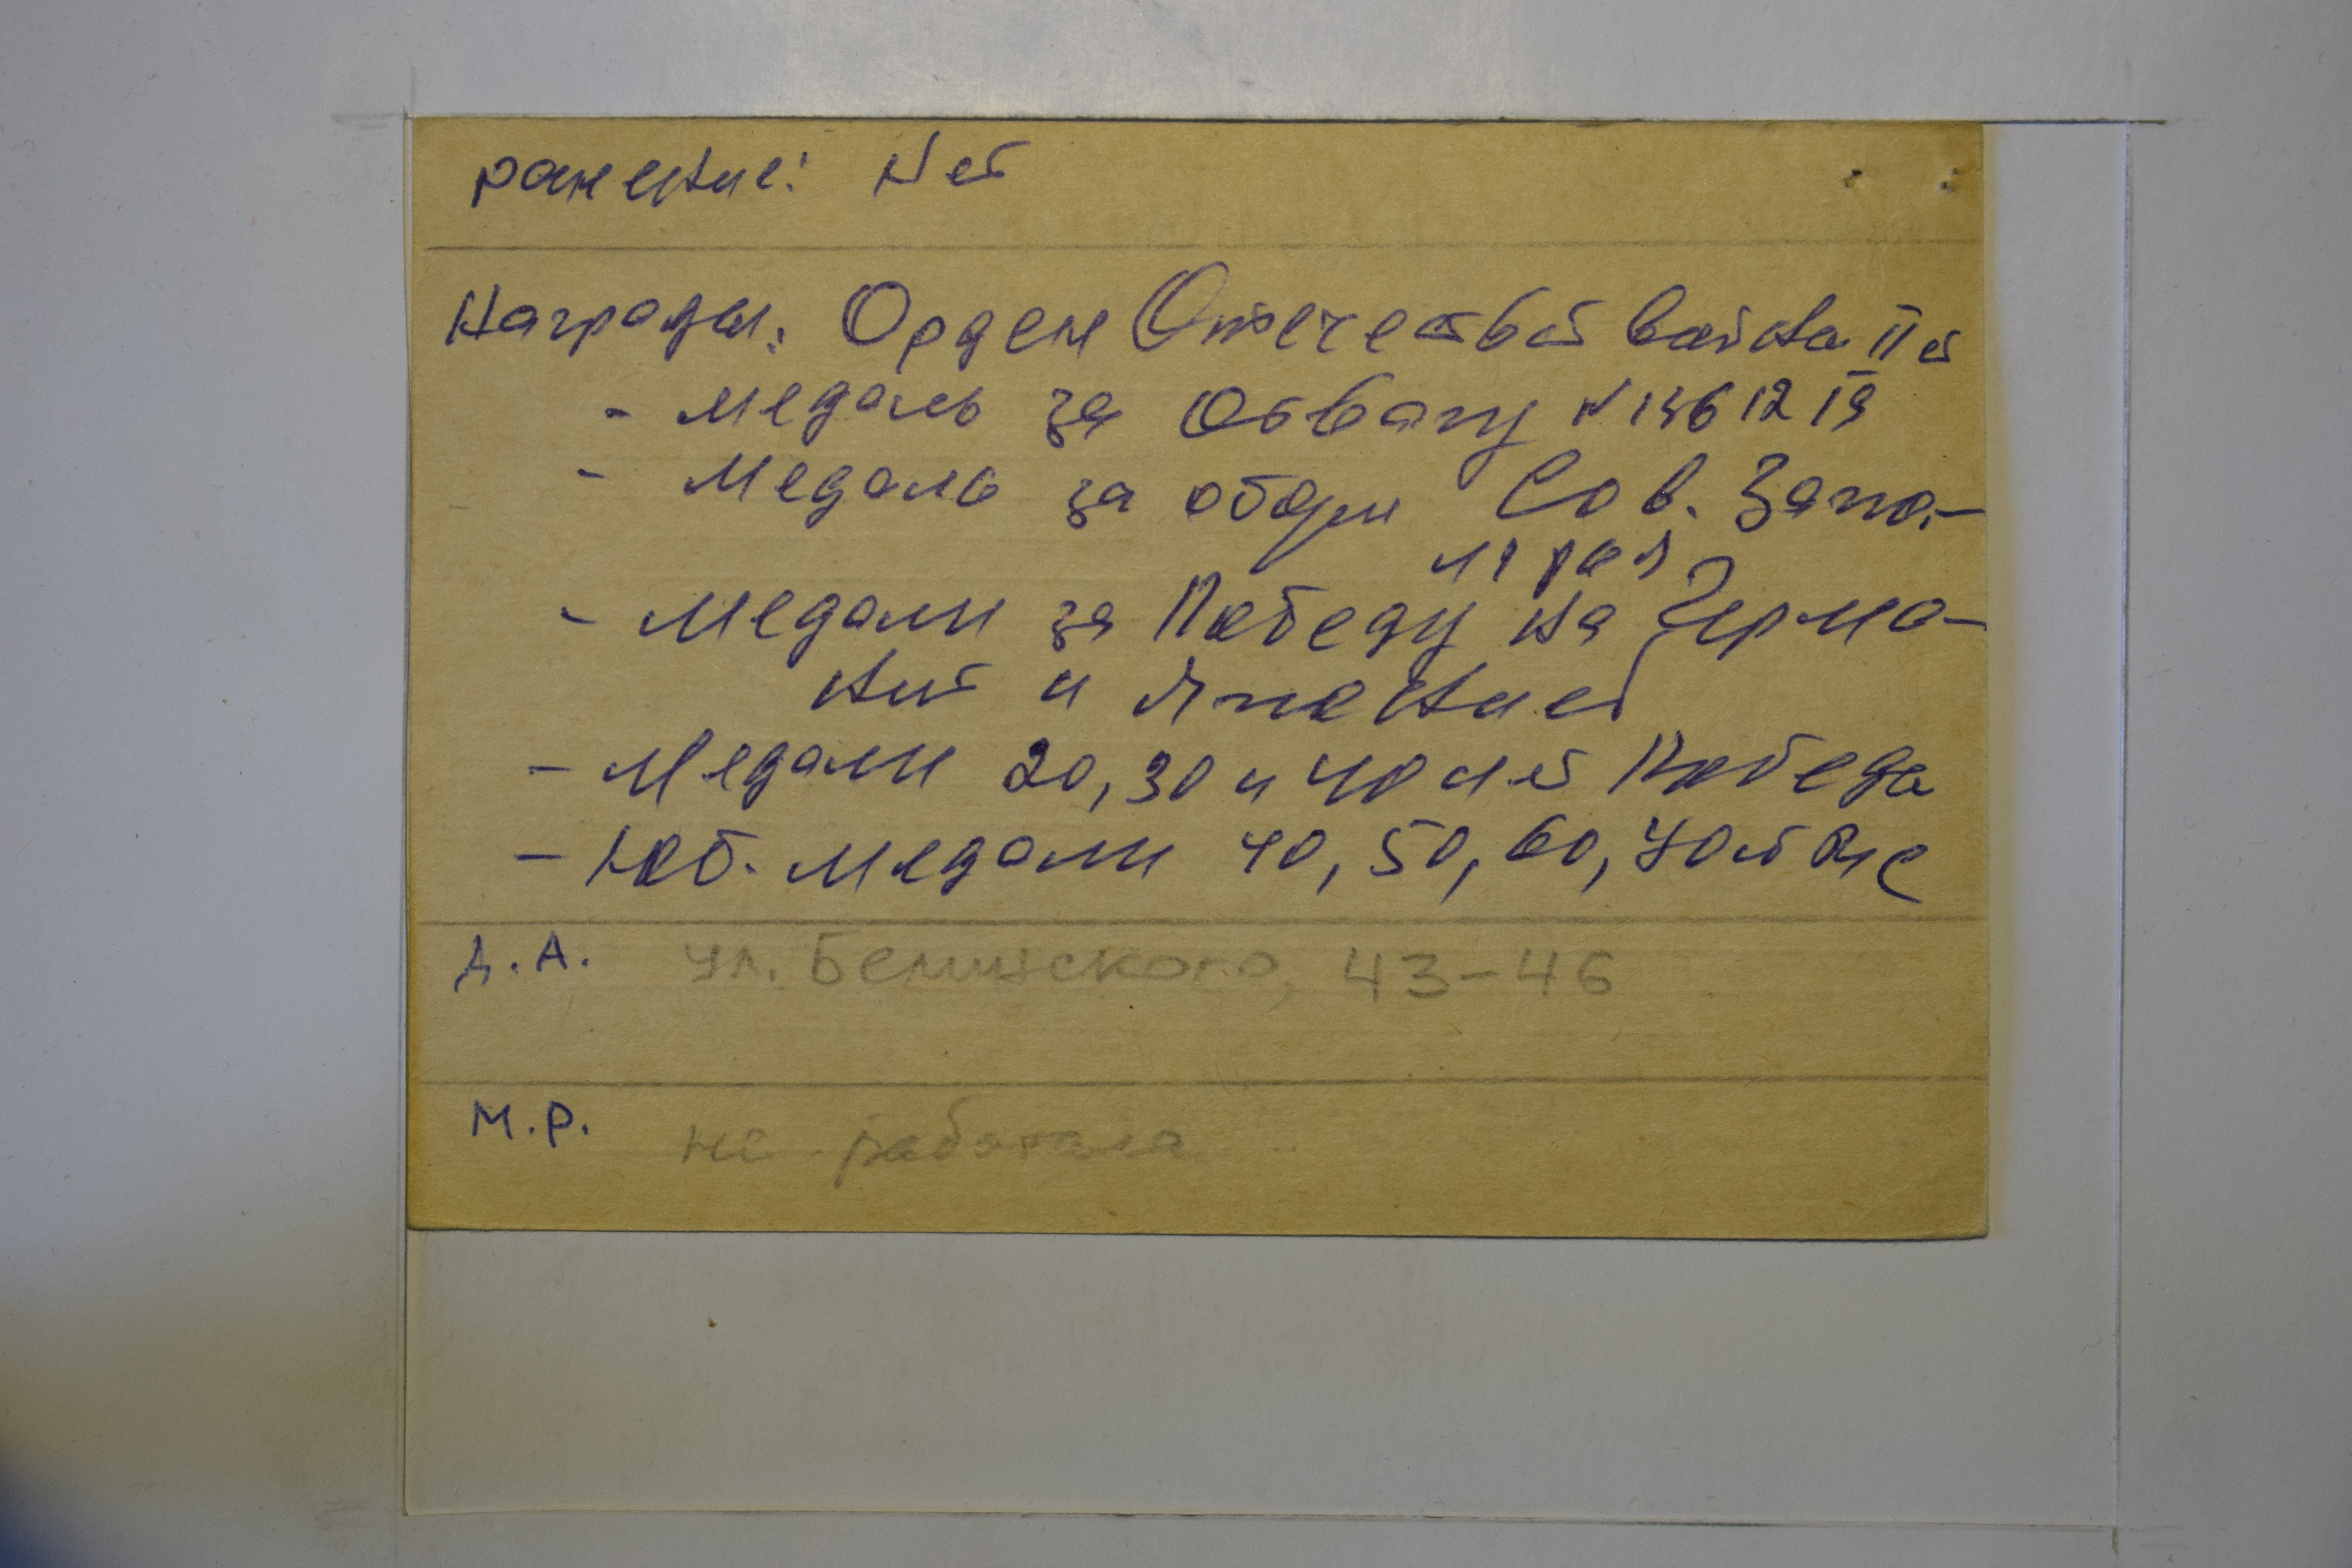 ранение: Нет
Награды: Орден Отечествой войны II ст
- Медаль за Отвагу №1361219
- Медаль за оборн Сов. Запо-
лярья
- Медали за Победу на Герма-
ний и Японией
- Медали 20, 30 и 40 лет Победы
- Юб. медали 40, 50, 60, 70 лет ВС
Д.А. ул. Белинского, 43-46
М.Р. не работала